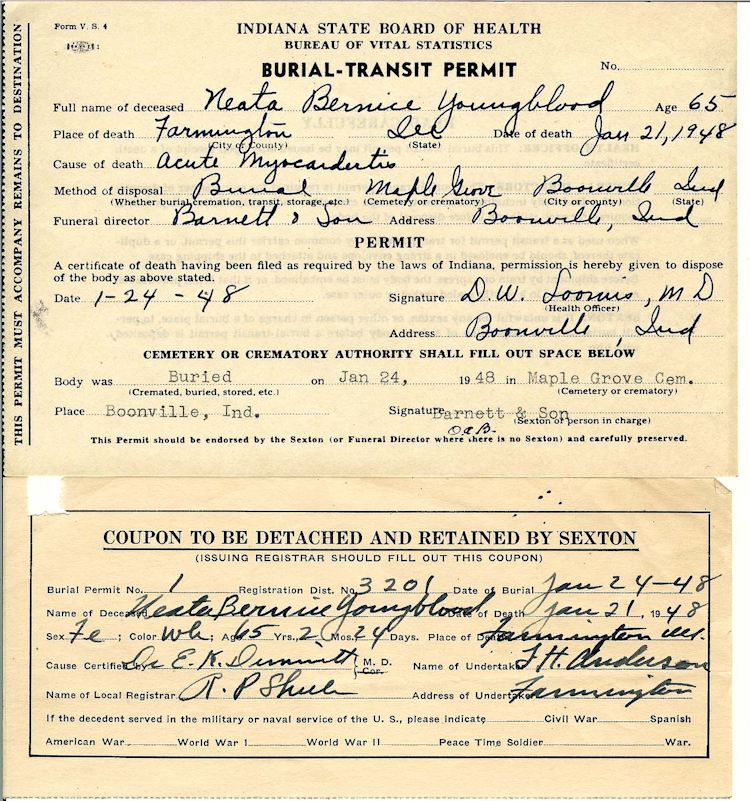 Form V. S. 4
INDIANA STATE BOARD OF HEALTH
BUREAU OF VITAL STATISTICS
BURIAL-TRANSIT PERMIT
No.
THIS PERMIT MUST ACCOMPANY REMAINS TO DESTINATION
Full name of deceased Neata Bernice Youngblood Age 65
Place of death Farmington Ill Date of death Jan 21, 1948
(City or County) (State)
Cause of death Acute Myocardertis
Method of disposal Burial Maple Grove Boonville Ind
(Whether burial, cremation, transit, storage, etc.) (Cemetery or crematory) (City or county) (State)
Funeral director Barnett & Son Address Boonville, Ind
PERMIT
A certificate of death having been filed as required by the laws of Indiana, permission is hereby given to dispose
of the body as above stated.
Date 1-24-48 Signature D. W. Loomis, M D
(Health Officer)
Address Boonville, Ind
CEMETERY OR CREMATORY AUTHORITY SHALL FILL OUT SPACE BELOW
Body was Buried on Jan 24, 1948 in Maple Grove Cem.
(Cremated, buried, stored, etc.) (Cemetery or crematory)
Place Boonville, Ind. Signature Barnett & Son
(Sexton or person in charge)
This Permit should be endorsed by the Sexton (or Funeral Director where there is no Sexton) and carefully preserved.
COUPON TO BE DETACHED AND RETAINED BY SEXTON
(ISSUING REGISTRAR SHOULD FILL OUT THIS COUPON)
Burial Permit No. 1 Registration Dist. No. 3201 Date of Burial Jan 24-48
Name of Deceased Neata Bernice Youngblood Date of Death Jan 21, 1948
Sex Fe; Color Wh; Age 65 Yrs., 2 Mos. 24 Days. Place of Death Farmington Ill.
Cause Certified by Dr E. K. Dimmitt { M. D. Cor. Name of Undertaker F. H. Anderson
Name of Local Registrar R. P. Address of Undertaker Farmington
If the decedent served in the military or naval service of the U. S., please indicate Civil War Spanish
American War World War I World War II Peace Time Soldier War.